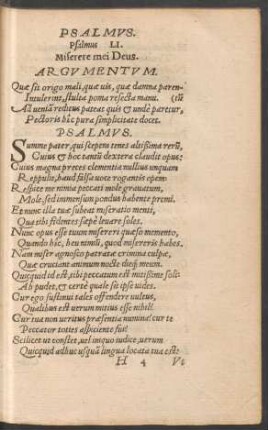 PSALMVS.
Psalmus LI.
Miserere mei Deus.
ARGVMENTVM.
Quæ sit origo mali, quæ uis, quæ damna paren-
Intulerint, stulta poma resecta manu. (tũ
Ad ueniã reditus pateat quis & unde paretur,
Pectoris hic pura simplicitate docet.
PSALMVS.
Summe pater, qui sceptra tenes altissima rerũ,
Cuius & hoc tantũ dextera claudit opus:
Cuius magna preces clementia nullius unquam
Reppulit, haud falsa uoce rogantis opem
Respice me nimia peccati mole grauatum,
Mole, sed immensum pondus habente premi.
Et nunc illa tuæ subeat miseratio menti,
Qua tibi fidentes sæpe leuare soles.
Nunc opus esse tuum misereri quæso memento,
Quando hic, heu nimiũ, quod miserêris habes.
Nam miser agnosco patratæ crimina culpæ,
Quæ cruciant animum nocte diéq; meum.
Quicquid id est, tibi peccatum est mitissime soli:
Ah pudet, & certè quale sit ipse uides.
Cur ego sustinui tales offendere uultus,
Qualibus est uerum mitius esse nihil?
Cur tua non ueritus præsentia numina? cur te
Peccator toties aspiciente fui?
Scilicet ut constet, uel iniquo iudice, uerum
Quicquid adhuc usquã lingua locuta tua est:
H 4 Vt